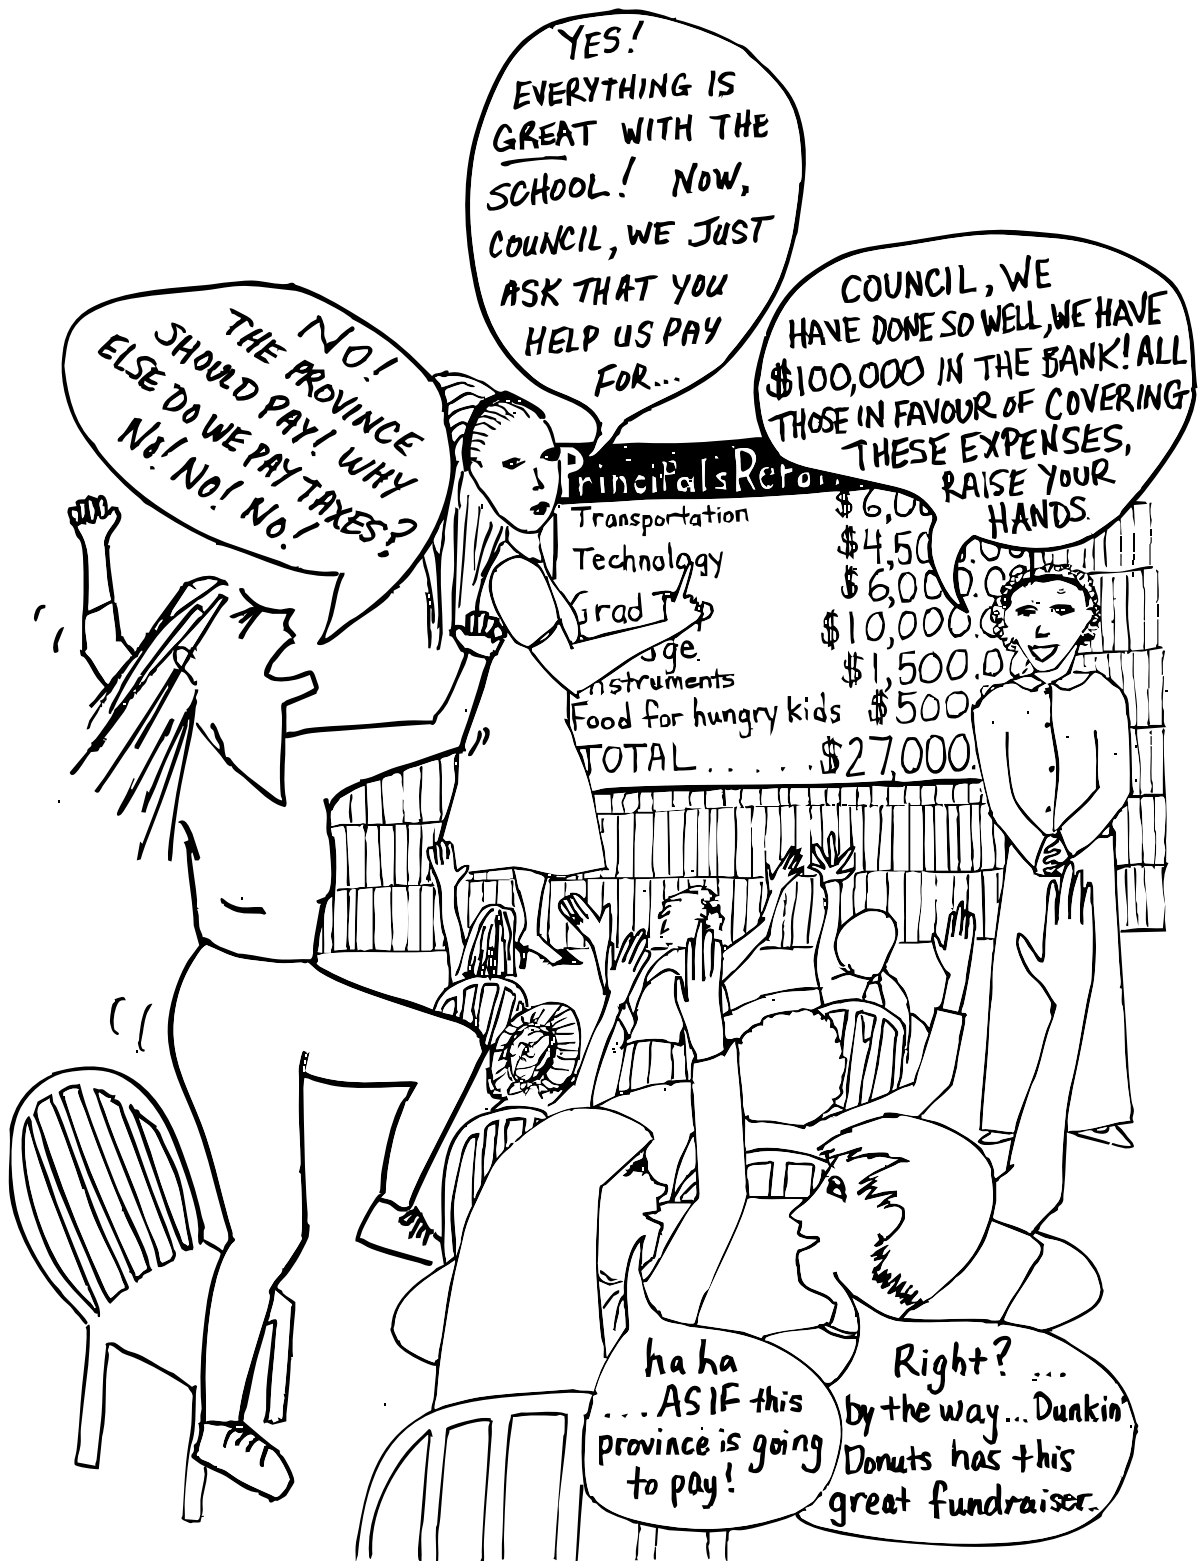 YES!
EVERYTHING IS
GREAT WITH THE
SCHOOL! NOW,
COUNCIL, WE JUST
ASK THAT YOU
HELP US PAY
FOR...
NO!
THE PROVINCE
SHOULD PAY! WHY
ELSE DO WE PAY TAXES?
NO! NO! NO!
COUNCIL, WE
HAVE DONE SO WELL, WE HAVE
$100,000 IN THE BANK! ALL
THOSE IN FAVOUR OF COVERING
THESE EXPENSES,
RAISE YOUR
HANDS.
Principals
Transportation $6,00
Technology $4,50
Grad $6,000.00
$10,000
Instruments $1,500.0
Food for hungry kids $500
TOTAL...... $27,000.
ha ha
....AS IF this
province is going
to pay!
Right? ...
by the way... Dunkin'
Donuts has this
great fundraiser.